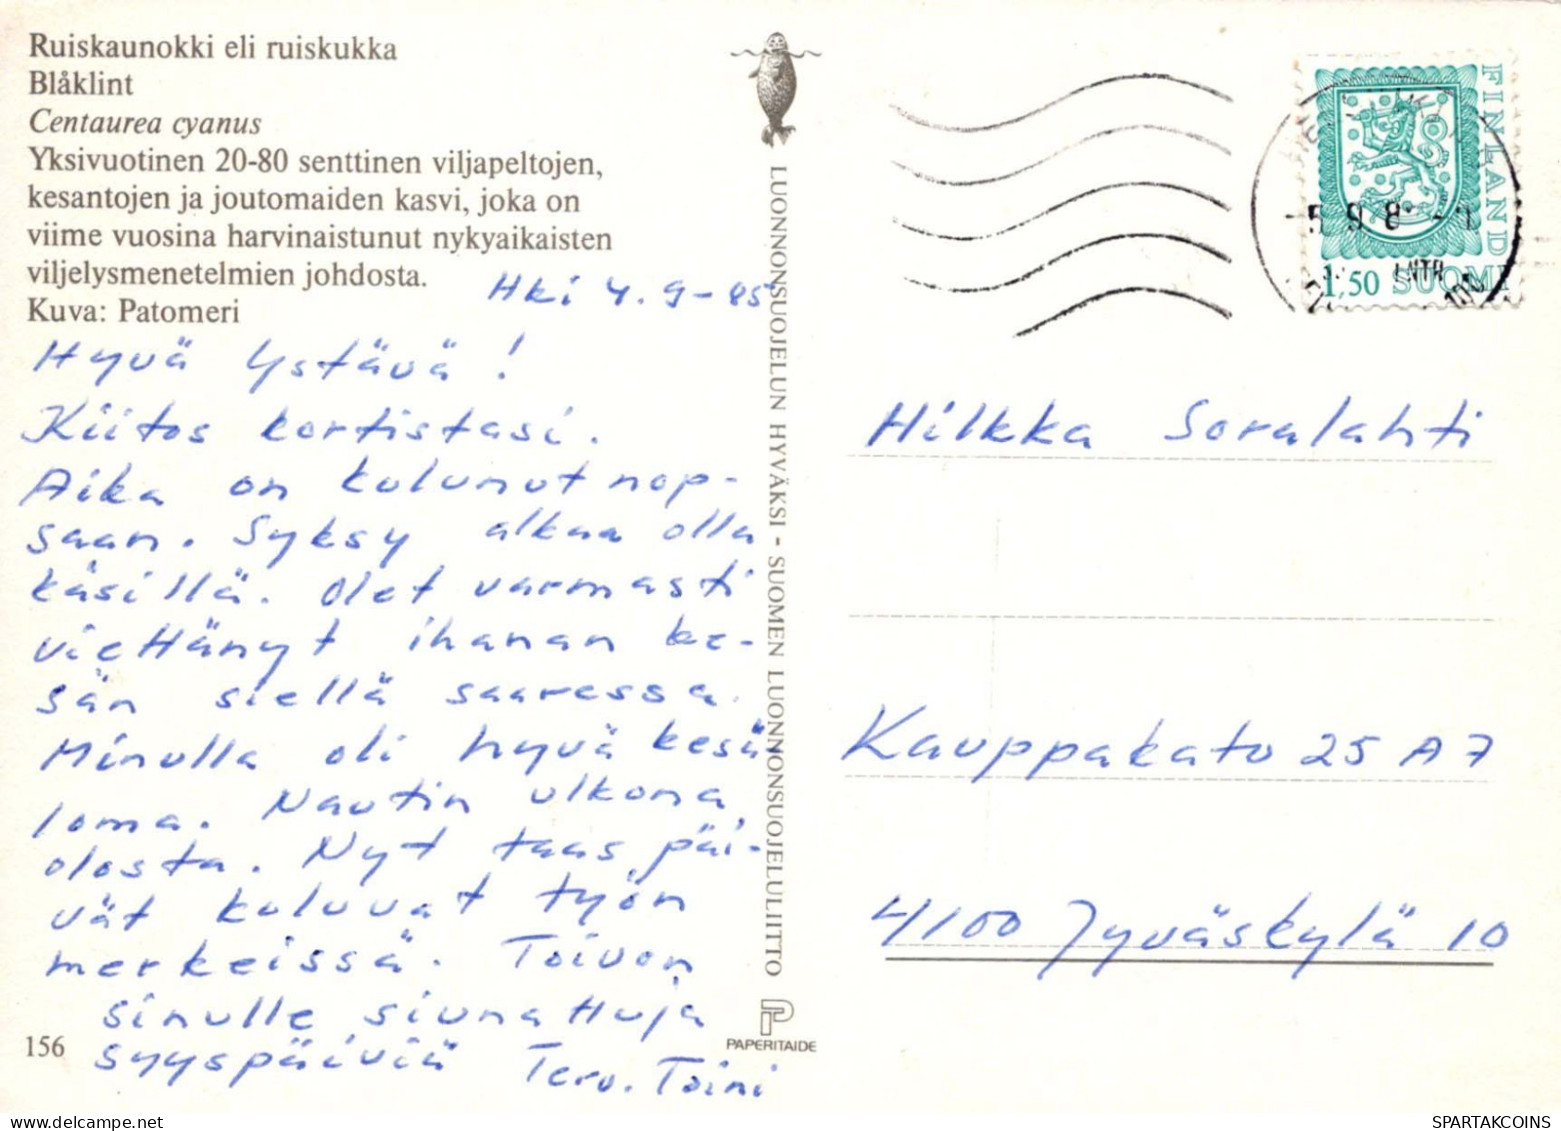 Ruiskaunokki eli ruiskukka
Blåklint
Centaurea cyanus
Yksivuotinen 20-80 senttinen viljapeltojen,
kesantojen ja joutomaiden kasvi, joka on
viime vuosina harvinaistunut nykyaikaisten
viljelysmenetelmien johdosta.
Kuva: Patomeri
Hki 4.9-85
Hyvä Ystävä!
Kiitos kortistasi.
Aika on kulunut nop-
saan. Syksy alkaa olla
käsillä. Olet varmasti
viettänyt ihanan ke-
sän siellä saaressa.
Minulla oli hyvä kesä
loma. Nautin ulkona
olosta. Nyt taas päi-
vät kuluvat työn
merkeissä. Toivon
sinulle siunattuja
syyspäiviä Terv. Toini
156
LUONNONSUOJELUN HYVÄKSI - SUOMEN LUONNONSUOJELULIITTO
PAPERITAIDE
FINLAND
1,50 SUOMI
5 9 8
Hilkka Soralahti
Kauppakatu 25 A 7
41100 Jyväskylä 10
delcampe.net
SPARTAKCOINS